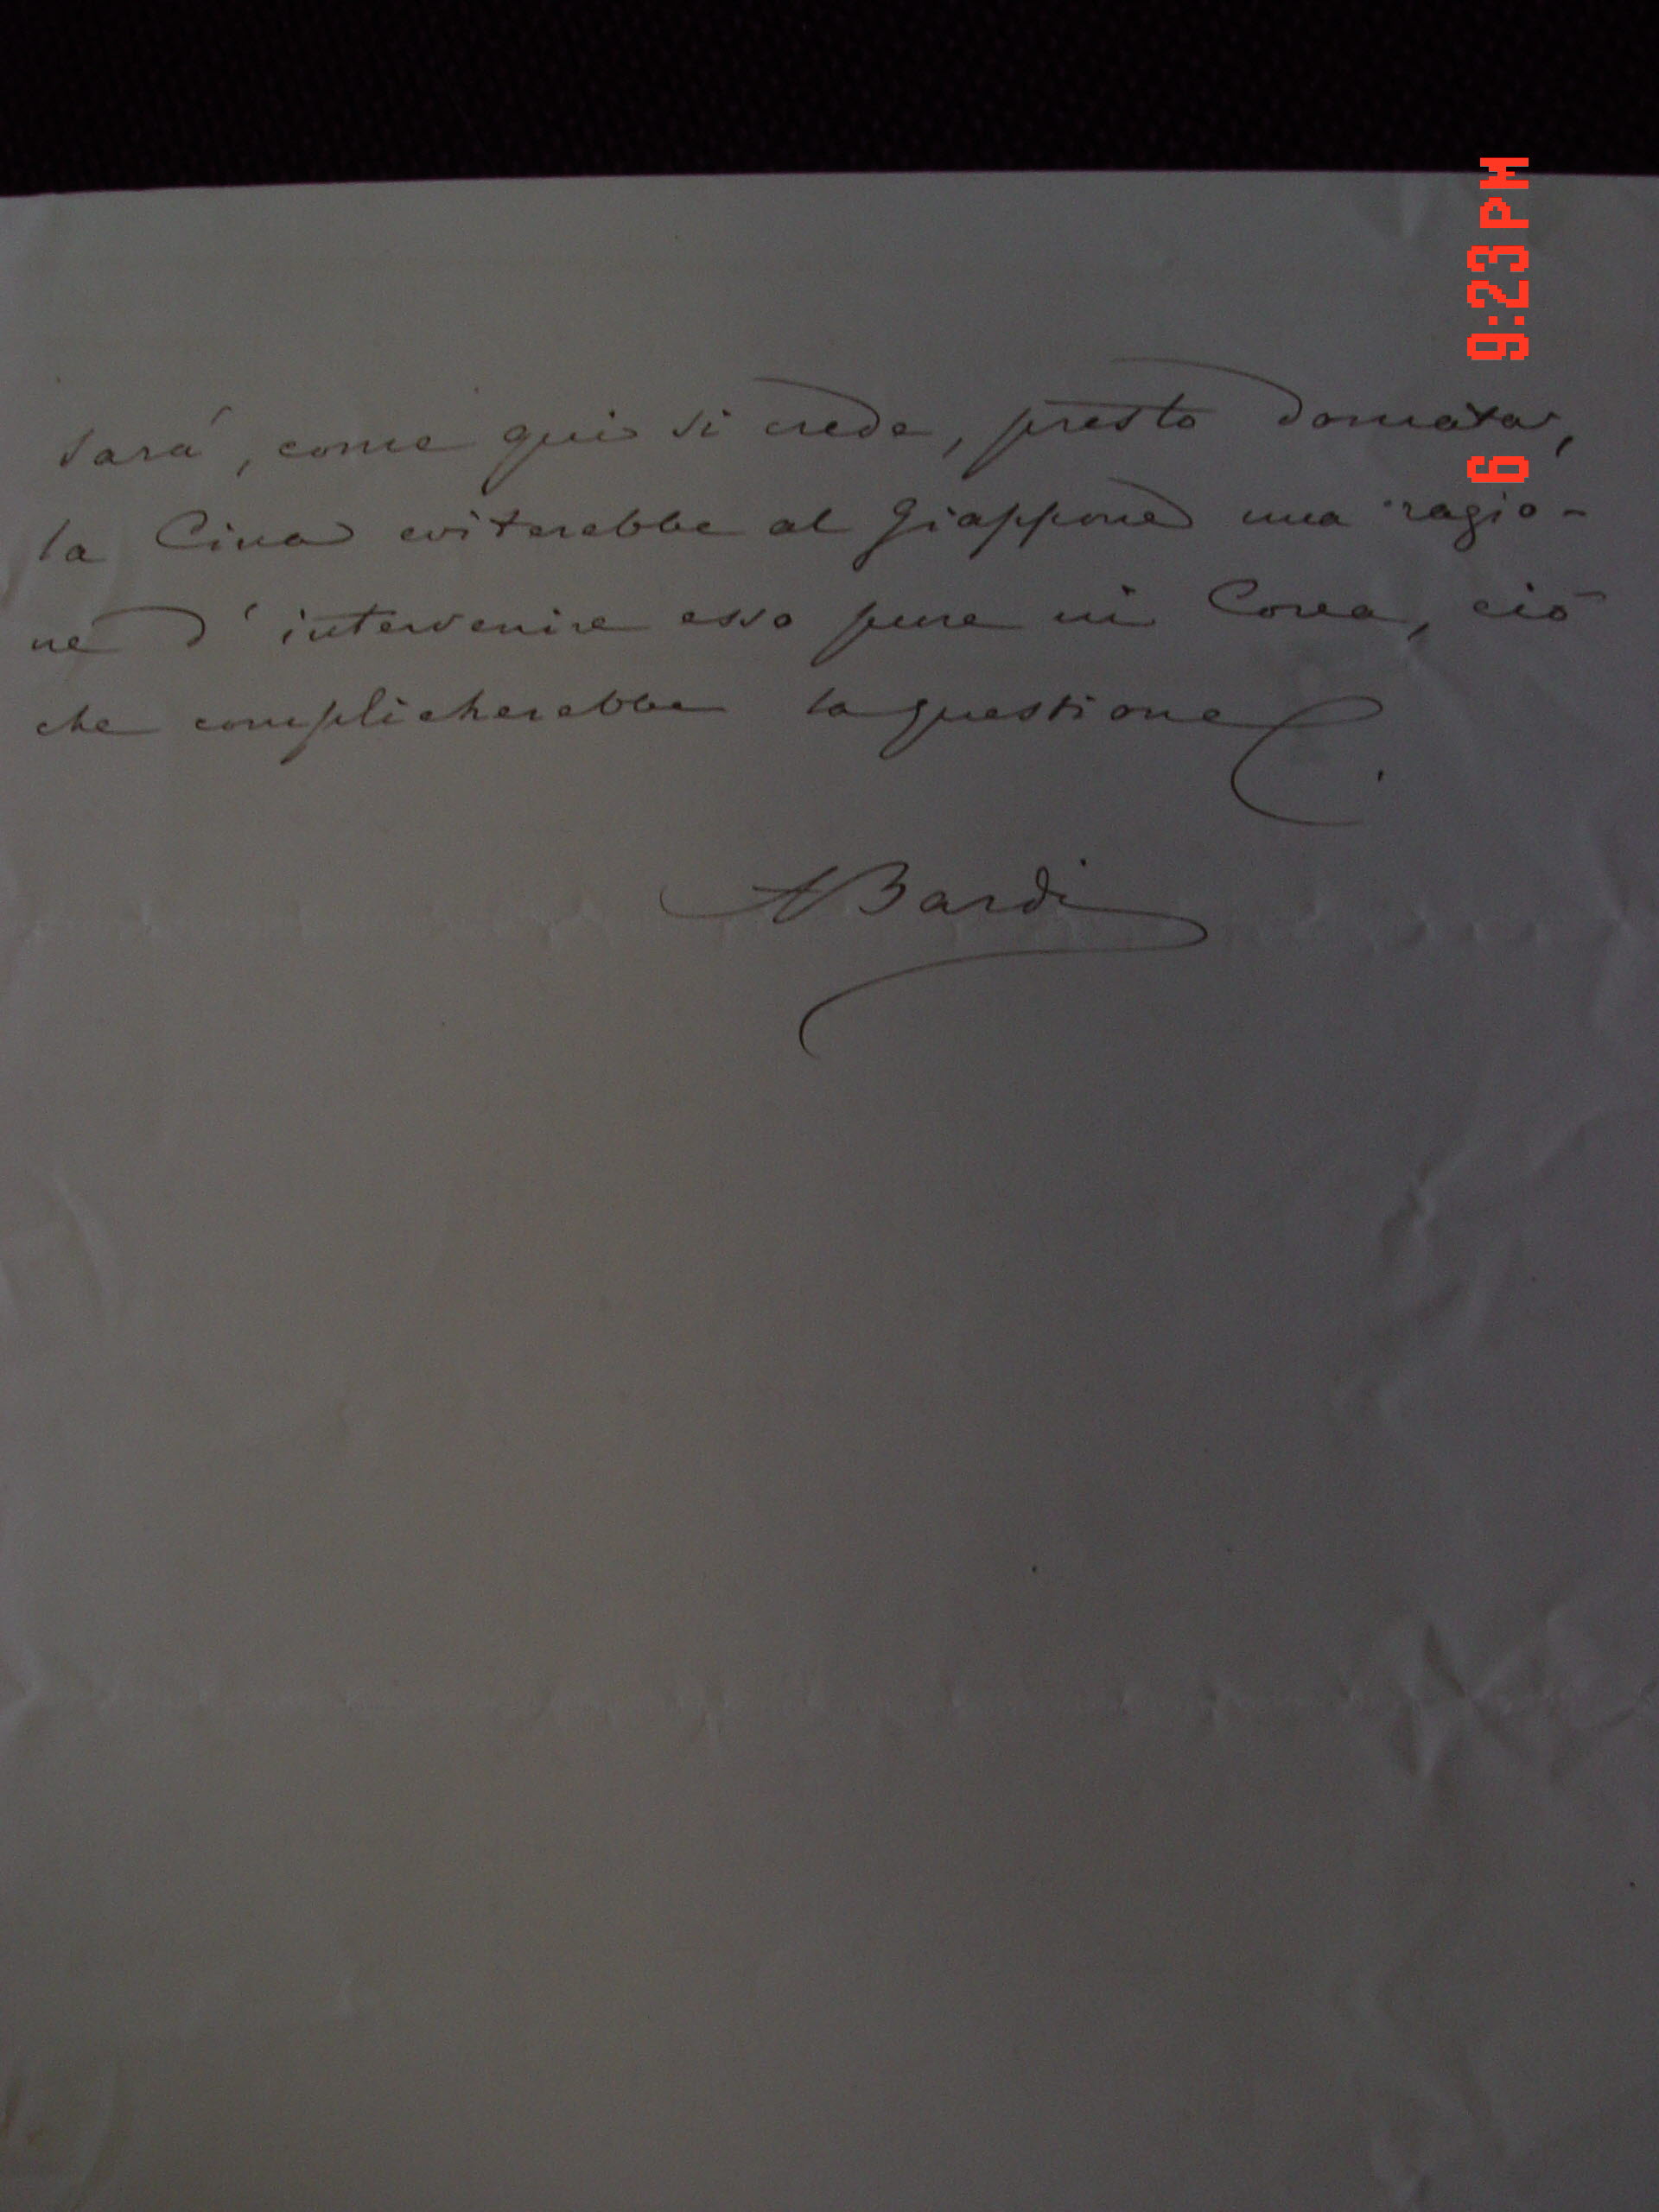 sarà, come qui si crede, presto domata,
la Cina eviterebbe al Giappone una ragio-
ne d'intervenire esso pure in Corea, ciò
che complicherebbe la questione.
ABardi
6 9:23 PM